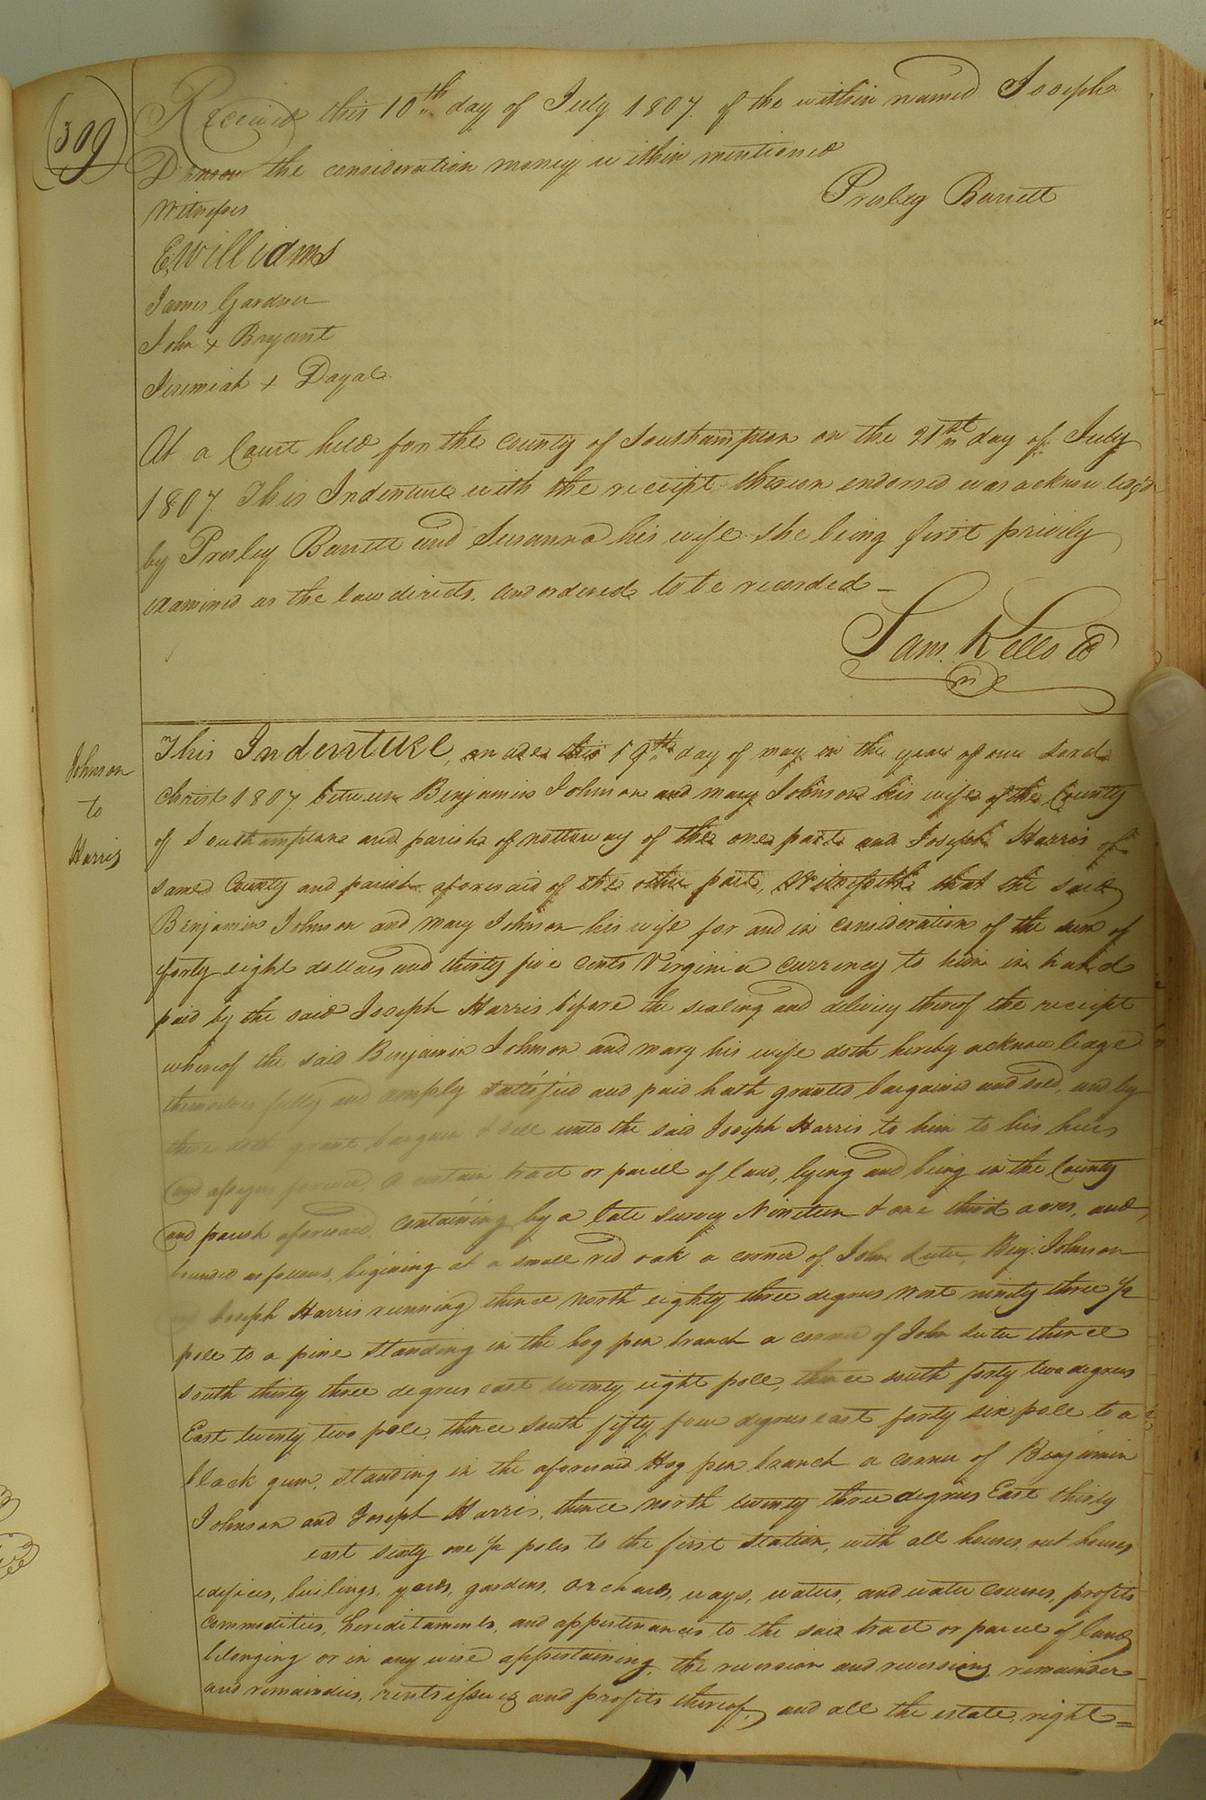 309
Received this 10th day of July 1807. of the within named Joseph
the consideration money within mentioned
Presley Barrett
Witnesses
E. Williams
James Gardner
John + Bryant
Jeremiah +
At a Court held for the county of Southampton on the 21st day of July
1807. This Indenture with the receipt thereon endorsed was acknowledg'd
by Presley Barrett and Susanna his wife she being first privily
examined as the law directs. and ordered to be recorded –
Sam. Kello Cl
Johnson
to
Harris
This Indenture, made this 19th day of may in the year of our Lord
Christ 1807 between Benjamin Johnson and mary Johnson his wife of the County
of Southampton and parish of nottoway of the one part and Joseph Harris of
same County and parish aforesaid of the other part, Witnesseth that the said
Benjamin Johnson and mary Johnson his wife for and in consideration of the sum of
forty eight dollars and thirty five cents Virginia currency to him in hand
paid by the said Joseph Harris before the sealing and delivery thereof the receipt
whereof the said Benjamin Johnson and mary his wife doth hereby acknowledge
themselves fully and amply satisfied and paid hath granted bargained and sold, and by
these doth grant bargain & sell unto the said Joseph Harris to him to his heirs
and assigns forever, a certain tract or parcell of land, lying and being in the County
and parish aforesaid, containing by a late survey Nineteen & one third acres, and
bounded as follows, begining at a small red oak a corner of John Benj. Johnson
Joseph Harris running thence north eighty three degrees West ninety three ½
pole to a pine standing in the hog pen branch a corner of John thence
south thirty three degrees east twenty eight pole, thence south forty two degrees
East twenty two pole, thence south fifty four degrees east forty six pole to a
black gum, standing in the aforesaid Hog pen branch a corner of Benjamin
Johnson and Joseph Harris, thence north twenty three degrees East thirty
east sixty one ½ poles to the first station, with all houses, out houses
edifices, builings, yards, gardens, orchards, ways, waters, and water courses, profits
commodities, hereditaments, and appertinances to the said tract or parcel of land
belonging or in any wise appertaining, the reversion and reversions remainder
and remainders, rents issues and profits thereof, and all the estate, right =